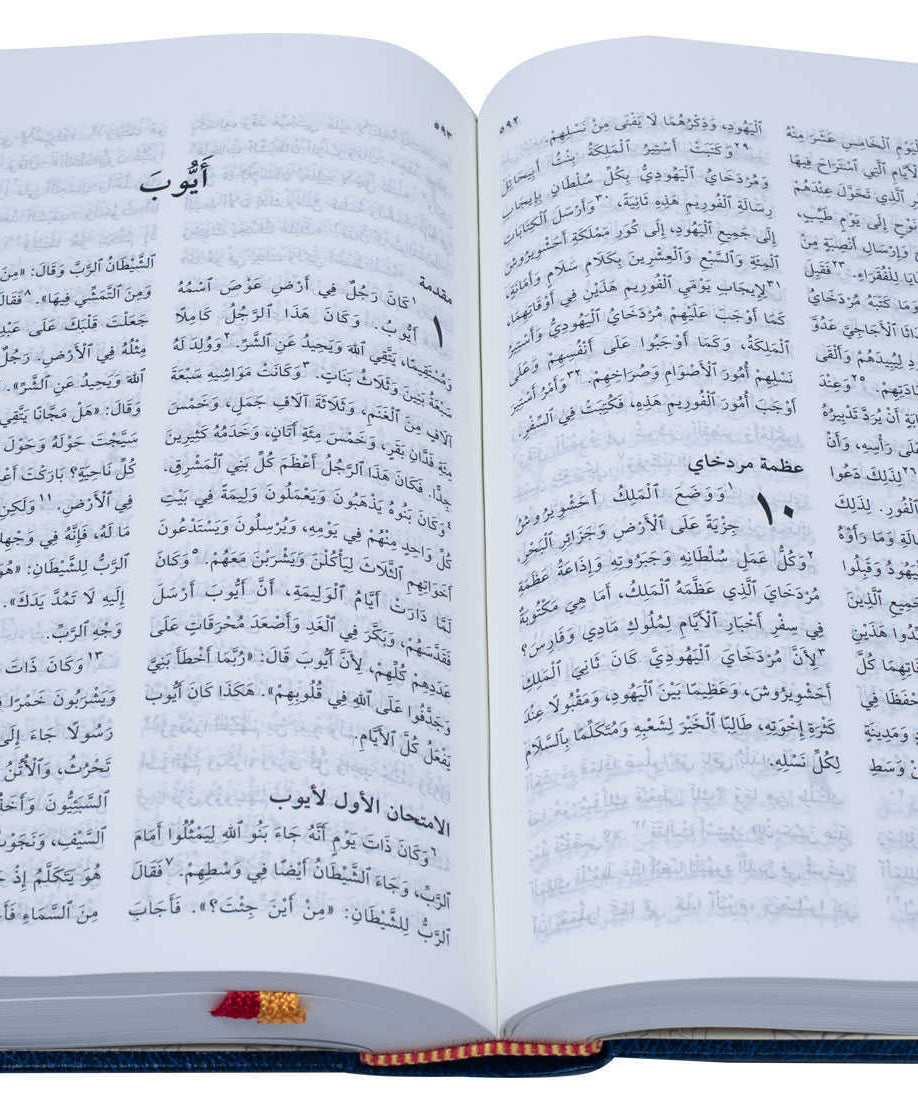 ٥٩٢
ٱلْيَوْمَ ٱلْخَامِسَ عَشَرَ مِنْهُ
ٱلْأَيَّامِ ٱلَّتِي ٱسْتَرَاحَ فِيهَا
ٱلَّذِي تَحَوَّلَ عِنْدَهُمْ
نَوْحٍ إِلَى يَوْمٍ طَيِّبٍ،
وَإِرْسَالِ أَنْصِبَةٍ مِنْ
لِلْفُقَرَاءِ. ٢٣فَقَبِلَ
مَا كَتَبَهُ مُرْدَخَايُ
ٱلْأَجَاجِيَّ عَدُوَّ
لِيُبِيدَهُمْ وَأَلْقَى
٢٥وَعِنْدَ
أَنْ يُرَدَّ تَدْبِيرُهُ
عَلَى رَأْسِهِ، وَأَنْ
٢٦لِذَلِكَ دَعَوْا
ٱلْفُورِ. لِذَلِكَ
وَمَا رَأَوْهُ
وَقَبِلُوا
جَمِيعِ ٱلَّذِينَ
هَذَيْنِ
كُلَّ
فِي
وَمَدِينَةٍ
وَسَطِ
ٱلْيَهُودِ، وَذِكْرُهُمَا لَا يَفْنَى مِنْ نَسْلِهِمْ.
٢٩وَكَتَبَتْ أَسْتِيرُ ٱلْمَلِكَةُ بِنْتُ أَبِيحَائِلَ
وَمُرْدَخَايُ ٱلْيَهُودِيُّ بِكُلِّ سُلْطَانٍ بِإِيجَابِ
رِسَالَةِ ٱلْفُورِيمِ هَذِهِ ثَانِيَةً، ٣٠وَأَرْسَلَ ٱلْكِتَابَاتِ
إِلَى جَمِيعِ ٱلْيَهُودِ، إِلَى كُوَرِ مَمْلَكَةِ أَحَشْوِيرُوشَ
ٱلْمِئَةِ وَٱلسَّبْعِ وَٱلْعِشْرِينَ بِكَلَامِ سَلَامٍ وَأَمَانَةٍ،
٣١لِإِيجَابِ يَوْمَيِ ٱلْفُورِيمِ هَذَيْنِ فِي أَوْقَاتِهِمَا،
كَمَا أَوْجَبَ عَلَيْهِمْ مُرْدَخَايُ ٱلْيَهُودِيُّ وَأَسْتِيرُ
ٱلْمَلِكَةُ، وَكَمَا أَوْجَبُوا عَلَى أَنْفُسِهِمْ وَعَلَى
نَسْلِهِمْ أُمُورَ ٱلْأَصْوَامِ وَصُرَاخِهِمْ. ٣٢وَأَمْرُ أَسْتِيرَ
أَوْجَبَ أُمُورَ ٱلْفُورِيمِ هَذِهِ، فَكُتِبَتْ فِي ٱلسِّفْرِ.
عظمة مردخاي
١٠ ١وَوَضَعَ ٱلْمَلِكُ أَحَشْوِيرُوشُ
جِزْيَةً عَلَى ٱلْأَرْضِ وَجَزَائِرِ ٱلْبَحْرِ.
٢وَكُلُّ عَمَلِ سُلْطَانِهِ وَجَبَرُوتِهِ وَإِذَاعَةُ عَظَمَةِ
مُرْدَخَايَ ٱلَّذِي عَظَّمَهُ ٱلْمَلِكُ، أَمَا هِيَ مَكْتُوبَةٌ
فِي سِفْرِ أَخْبَارِ ٱلْأَيَّامِ لِمُلُوكِ مَادِي وَفَارِسَ؟
٣لِأَنَّ مُرْدَخَايَ ٱلْيَهُودِيَّ كَانَ ثَانِيَ ٱلْمَلِكِ
أَحَشْوِيرُوشَ، وَعَظِيمًا بَيْنَ ٱلْيَهُودِ، وَمَقْبُولًا عِنْدَ
كَثْرَةِ إِخْوَتِهِ، طَالِبًا ٱلْخَيْرَ لِشَعْبِهِ وَمُتَكَلِّمًا بِٱلسَّلَامِ
لِكُلِّ نَسْلِهِ.
٥٩٣
أَيُّوبَ
مقدمة
١ ١كَانَ رَجُلٌ فِي أَرْضِ عَوْصَ ٱسْمُهُ
أَيُّوبُ. وَكَانَ هَذَا ٱلرَّجُلُ كَامِلًا
وَمُسْتَقِيمًا، يَتَّقِي ٱللهَ وَيَحِيدُ عَنِ ٱلشَّرِّ. ٢وَوُلِدَ لَهُ
سَبْعَةُ بَنِينَ وَثَلَاثُ بَنَاتٍ. ٣وَكَانَتْ مَوَاشِيهِ سَبْعَةَ
آلَافٍ مِنَ ٱلْغَنَمِ، وَثَلَاثَةَ آلَافِ جَمَلٍ، وَخَمْسَ
مِئَةِ فَدَّانِ بَقَرٍ، وَخَمْسَ مِئَةِ أَتَانٍ، وَخَدَمُهُ كَثِيرِينَ
جِدًّا. فَكَانَ هَذَا ٱلرَّجُلُ أَعْظَمَ كُلِّ بَنِي ٱلْمَشْرِقِ.
٤وَكَانَ بَنُوهُ يَذْهَبُونَ وَيَعْمَلُونَ وَلِيمَةً فِي بَيْتِ
كُلِّ وَاحِدٍ مِنْهُمْ فِي يَوْمِهِ، وَيُرْسِلُونَ وَيَسْتَدْعُونَ
أَخَوَاتِهِمِ ٱلثَّلَاثَ لِيَأْكُلْنَ وَيَشْرَبْنَ مَعَهُمْ. ٥وَكَانَ
لَمَّا دَارَتْ أَيَّامُ ٱلْوَلِيمَةِ، أَنَّ أَيُّوبَ أَرْسَلَ
فَقَدَّسَهُمْ، وَبَكَّرَ فِي ٱلْغَدِ وَأَصْعَدَ مُحْرَقَاتٍ عَلَى
عَدَدِهِمْ كُلِّهِمْ، لِأَنَّ أَيُّوبَ قَالَ: «رُبَّمَا أَخْطَأَ بَنِيَّ
وَجَدَّفُوا عَلَى ٱللهِ فِي قُلُوبِهِمْ». هَكَذَا كَانَ أَيُّوبُ
يَفْعَلُ كُلَّ ٱلْأَيَّامِ.
الامتحان الأول لأيوب
٦وَكَانَ ذَاتَ يَوْمٍ أَنَّهُ جَاءَ بَنُو ٱللهِ لِيَمْثُلُوا أَمَامَ
ٱلرَّبِّ، وَجَاءَ ٱلشَّيْطَانُ أَيْضًا فِي وَسَطِهِمْ. ٧فَقَالَ
ٱلرَّبُّ لِلشَّيْطَانِ: «مِنْ أَيْنَ جِئْتَ؟». فَأَجَابَ
ٱلشَّيْطَانُ ٱلرَّبَّ وَقَالَ: «مِنَ
وَمِنَ ٱلتَّمَشِّي فِيهَا». ٨فَقَالَ
جَعَلْتَ قَلْبَكَ عَلَى عَبْدِ
مِثْلُهُ فِي ٱلْأَرْضِ. رَجُلٌ
ٱللهَ وَيَحِيدُ عَنِ ٱلشَّرِّ».
وَقَالَ: «هَلْ مَجَّانًا يَتَّقِي
سَيَّجْتَ حَوْلَهُ وَحَوْلَ
كُلِّ نَاحِيَةٍ؟ بَارَكْتَ
فِي ٱلْأَرْضِ. ١١وَلَكِنِ
مَا لَهُ، فَإِنَّهُ فِي وَجْهِكَ
ٱلرَّبُّ لِلشَّيْطَانِ: «هُوَ
إِلَيْهِ لَا تَمُدَّ يَدَكَ».
وَجْهِ ٱلرَّبِّ.
١٣وَكَانَ ذَاتَ
وَيَشْرَبُونَ خَمْرًا
رَسُولًا جَاءَ إِلَى
تَحْرُثُ، وَٱلْأُتُنُ
ٱلسَّبَئِيُّونَ وَأَخَذُوهَا
ٱلسَّيْفِ، وَنَجَوْتُ
هُوَ يَتَكَلَّمُ إِذْ
مِنَ ٱلسَّمَاءِ